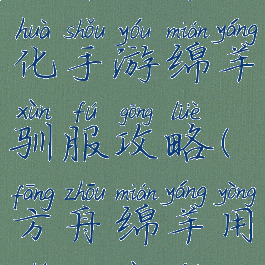 huà shǒu yóu mián yáng
化手游绵羊
xùn fú gōng lüè
驯服攻略(
fāng zhōu mián yáng yòng
方舟绵羊用